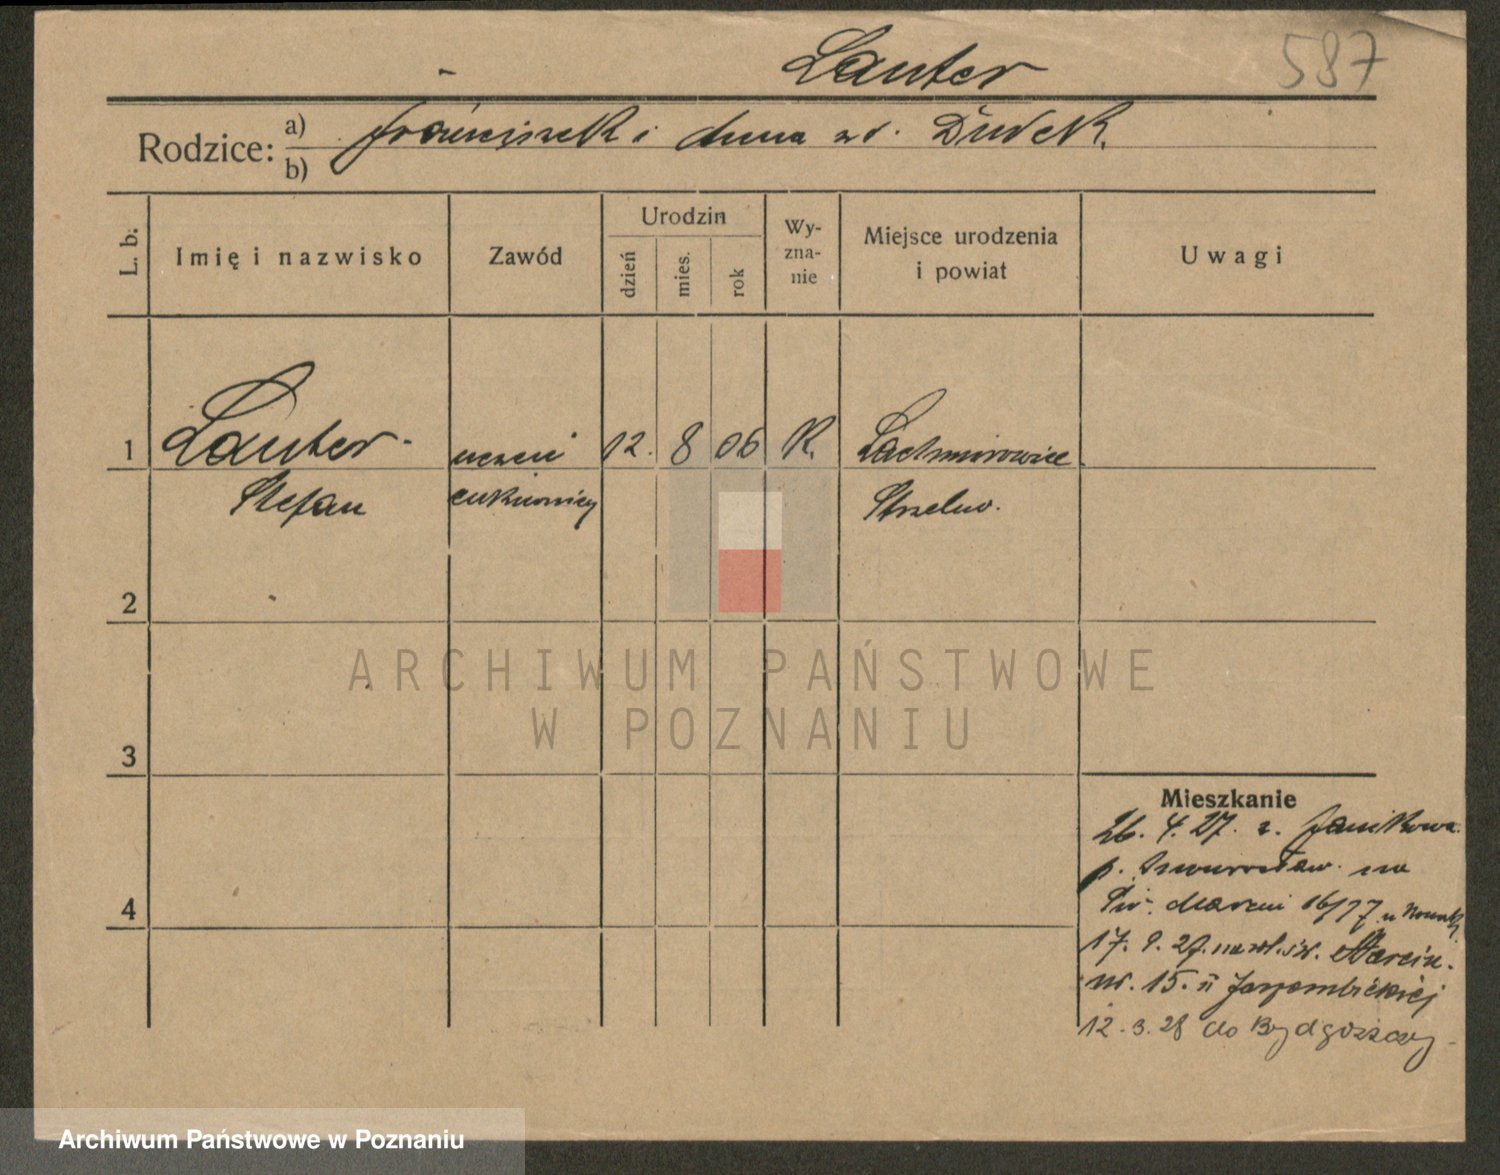 Lauter 587
Rodzice: a) Franciszek i Anna zd. Dudek.
b)
L. b. Imię i nazwisko Zawód Urodzin dzień mies. rok Wy-zna-nie Miejsce urodzenia i powiat Uwagi
1 Lauter uczeń 12. 8 06 K. Lachmirowice
Stefan cukierniczy Strzelno.
2
ARCHIWUM PAŃSTWOWE
W POZNANIU
3
Mieszkanie
26. 4. 27. z. Janikowa
p. Inowrocław. na
4 Św. Marcin 16/17 u Nowak
17. 9. 27. na wł. św. Marcin.
nr. 15. II
12. 3. 28 do Bydgoszczy
Archiwum Państwowe w Poznaniu